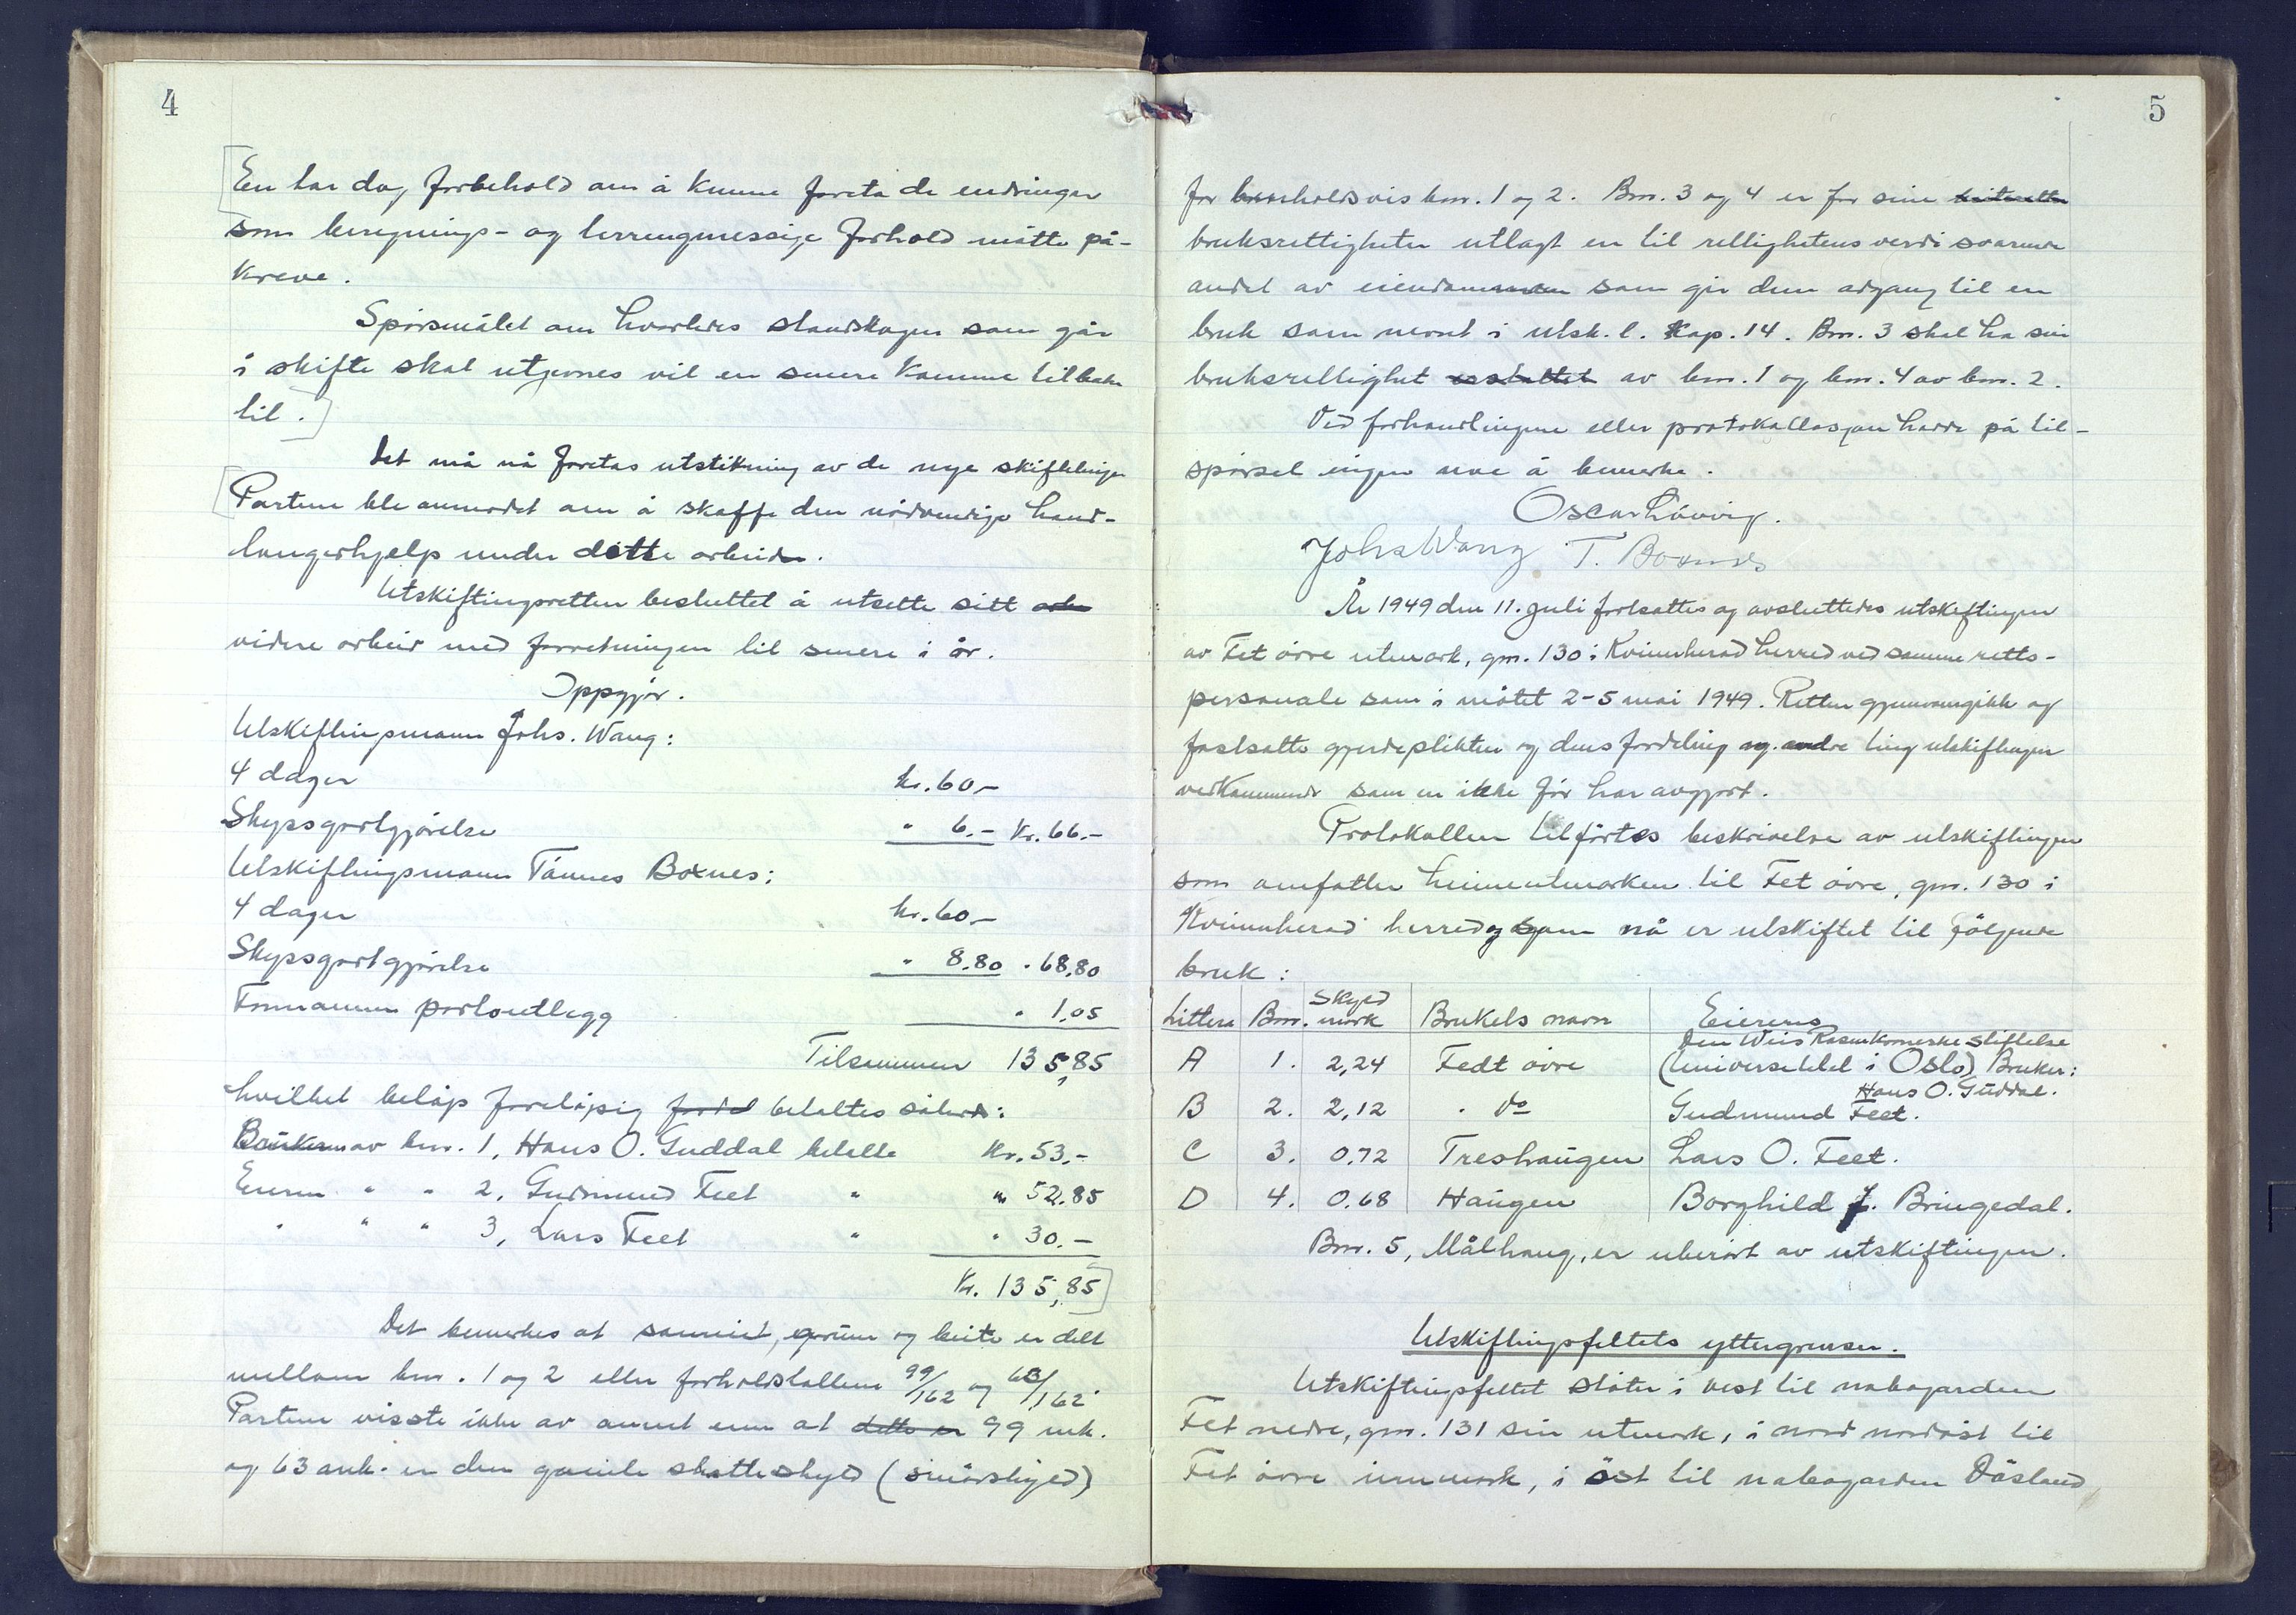 4
En tar dog forbehold om å kunne foreta de endringer
som beregnings- og terrengmessige forhold måtte på-
kreve.
Spörsmålet om hvorledes standskogen som går
i skifte skal utjevnes vil en senere komme tilbake
til.
Det må nå foretas utstikning av de nye skiftelinjer
Partene ble anmodet om å skaffe den nödvendige hand-
langerhjelp under dette arbeide.
Utskiftingsretten besluttet å utsette sitt
videre arbeid med forretningen til senere i år.
Oppgjör.
Utskiftingsmann Johs. Wang:
4 dager kr. 60.-
Skyssgodtgjörelse " 6.- Kr. 66.-
Utskiftingsmann Tönnes Boxnes:
4 dager kr. 60.-
Skyssgodtgjörelse " 8.80 " 68,80
Formannen portoutlegg " 1,05
Tilsammen 135,85
hvilket belöp forelöpig betaltes således:
Brukeren av bnr. 1, Hans O. Guddal betalte Kr. 53.-
Eieren " " 2, Gudmund Feet " " 52.85
" " " 3, Lars Feet " " 30.-
Kr. 135,85
Det bemerkes at sameiet, grunn og beite er delt
mellom bnr. 1 og 2 etter forholdstallene 99/162 og 63/162.
Partene visste ikke av annet enn at dette er 99 mk.
og 63 mk. er den gamle skatteskyld (smörskyld)
5
for henholdsvis bnr. 1 og 2. Bnr. 3 og 4 er for sine
bruksrettigheter utlagt en til rettighetens verdi svarende
andel av eiendommen som gir dem adgang til en
bruk som nevnt i utsk. l. Kap. 14. Bnr. 3 skal ha sin
bruksrettighet av bnr. 1 og bnr. 4 av bnr. 2.
Ved forhandlingene eller protokollasjon hadde på til-
spörsel ingen noe å bemerke.
Oscar Lövvig.
Johs Wang T. Boxnes
År 1949 den 11. juli fortsattes og avsluttedes utskiftingen
av Fet övre utmark, gnr. 130 i Kvinnherad herred ved samme retts-
personale som i mötet 2-5 mai 1949. Retten gjennomgikk og
fastsatte gjerdeplikten og dens fordeling og andre ting utskiftingen
vedkommende som en ikke för har avgjort.
Protokollen tilförtes beskrivelse av utskiftingen
som omfatter heimeutmarken til Fet övre, gnr. 130 i
Kvinnherad herred og som nå er utskiftet til fölgende
bruk:
Littera Bnr. Skyld mark Brukets navn Eierens
A 1. 2,24 Fedt övre Den Weis Rosenkroneske stiftelse
(Universitetet i Oslo) Bruker:
Hans O. Guddal.
B 2. 2,12 " do Gudmund Feet.
C 3. 0,72 Treshaugen Lars O. Feet.
D 4. 0.68 Haugen Borghild J. Bringedal.
Bnr. 5, Målhaug, er uberört av utskiftingen.
Utskiftingsfeltets yttergrenser.
Utskiftingsfeltet stöter i vest til nabogarden
Fet nedre, gnr. 131 sin utmark, i nord nordöst til
Fet övre innmark, i öst til nabogarden Dösland,